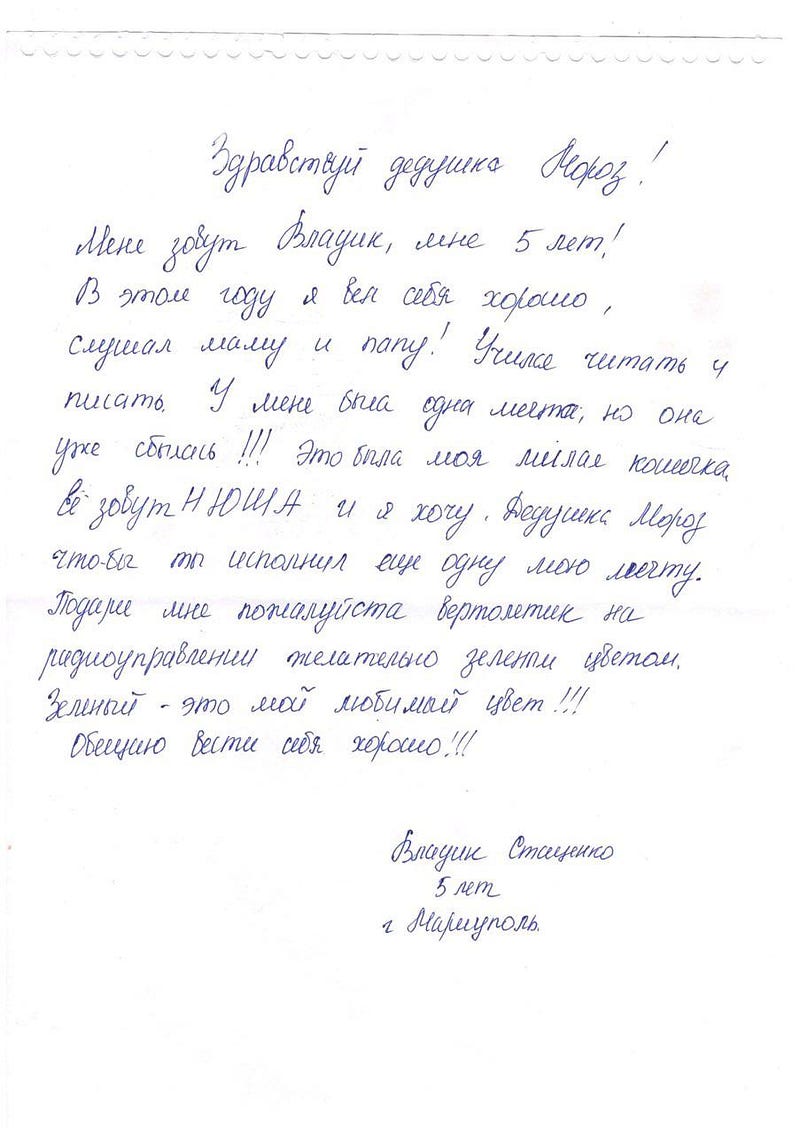 Здравствуй дедушка Мороз!
Мене зовут Владик, мне 5 лет!
В этом году я вел себя хорошо,
слушал маму и папу! Учился читать и
писать. У мене была одна мечта, но она
уже сбылась!!! Это была моя милая кошечка,
её зовут НЮША и я хочу. Дедушка Мороз
что-бы ты исполнил еще одну мою мечту.
Подари мне пожалуйста вертолетик на
радиоуправлении желательно зеленым цветом.
Зеленый - это мой любимый цвет!!!
Обещаю вести себя хорошо!!!
Владик Стаценко
5 лет
г Мариуполь.